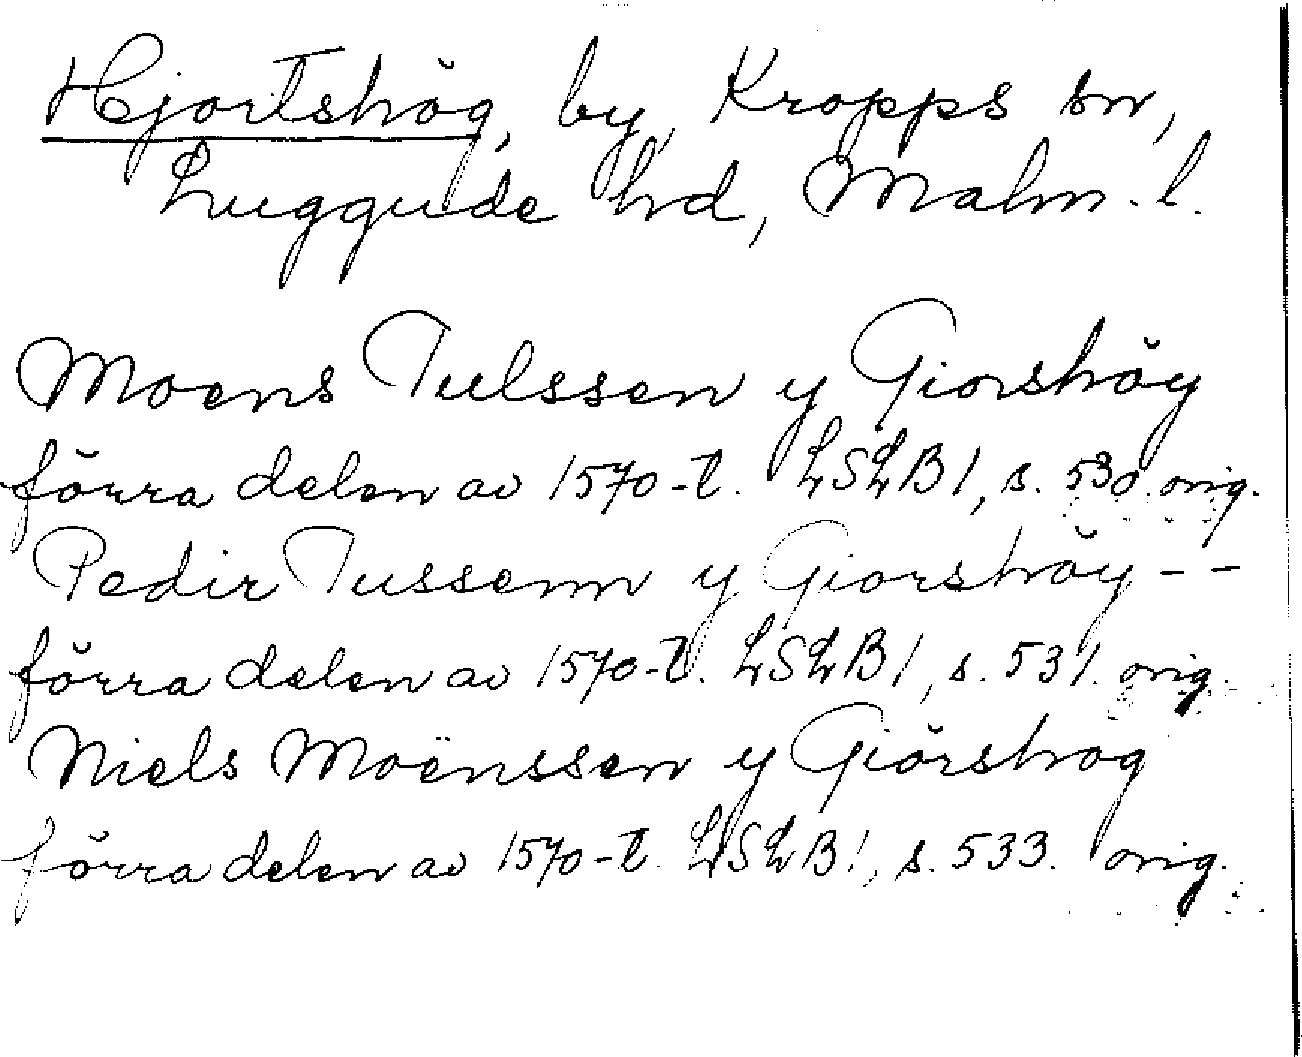 Hjortshög, by, Kropps sn,
Luggude hd, Malm. l.
Moens Tulssen y Giorshöy
förra delen av 1570-t. LSLB1, s. 530. orig.
Pedir Tussenn y Giorshöy - -
förra delen av 1570-t. LSLB1, s. 531. orig.
Niels Moënssen y Giörshog
förra delen av 1570-t. LSLB1, s. 533. orig.